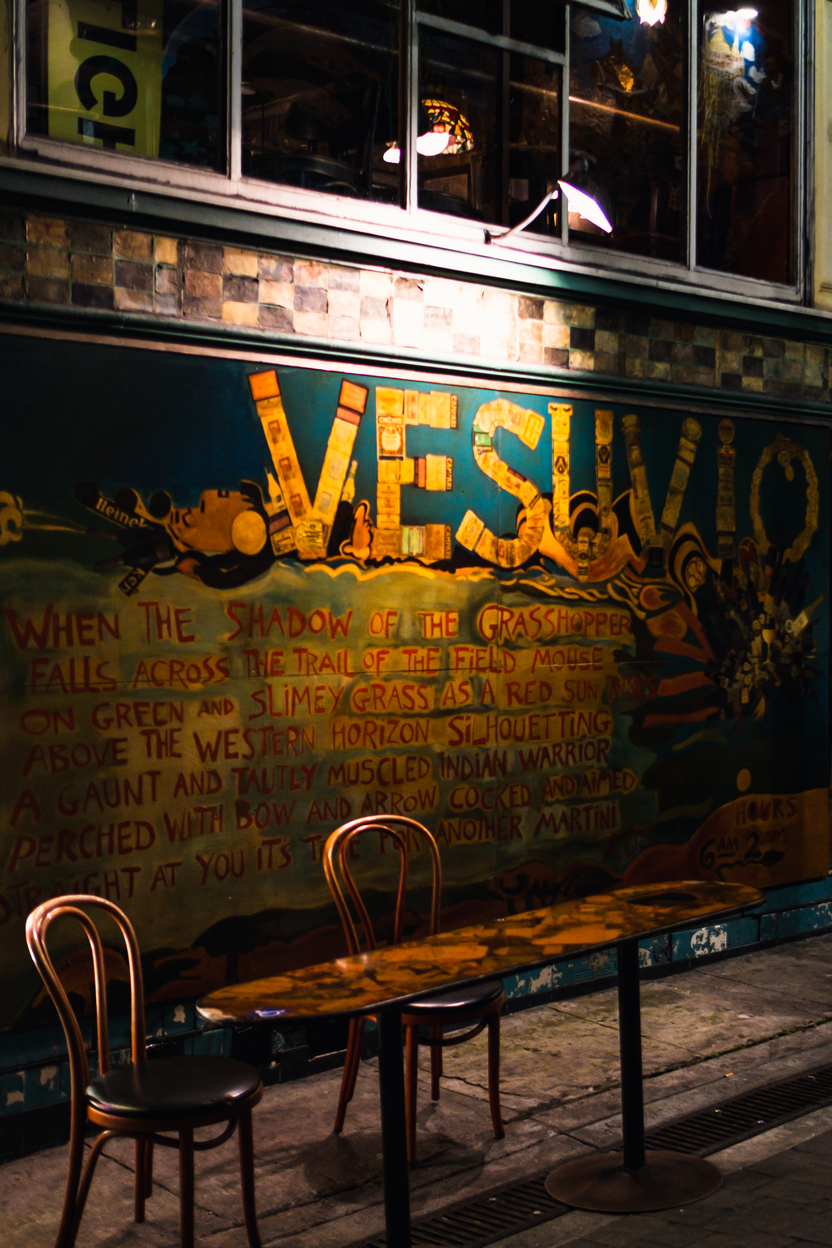 VESUVIO
Heinek
WHEN THE SHADOW OF THE GRASSHOPPER
FALLS ACROSS THE TRAIL OF THE FIELD MOUSE
ON GREEN AND SLIMEY GRASS AS A RED SUN RISES
ABOVE THE WESTERN HORIZON SILHOUETTING
A GAUNT AND TAUTLY MUSCLED INDIAN WARRIOR
PERCHED WITH BOW AND ARROW COCKED AND AIMED
STRAIGHT AT YOU ITS TIME FOR ANOTHER MARTINI
HOURS
6AM 2